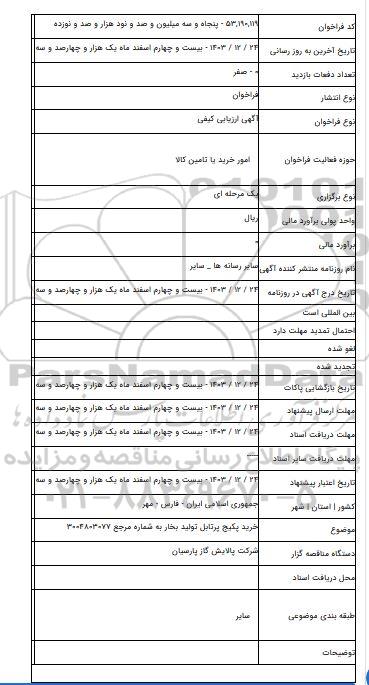 کد فراخوان ۵۳,۱۹۰,۱۱۹ - پنجاه و سه میلیون و صد و نود هزار و صد و نوزده
تاریخ آخرین به روز رسانی ۲۴ / ۱۲ / ۱۴۰۳ - بیست و چهارم اسفند ماه یک هزار و چهارصد و سه
تعداد دفعات بازدید ۰ - صفر
نوع انتشار فراخوان
نوع فراخوان آگهی ارزیابی کیفی
حوزه فعالیت فراخوان امور خرید یا تامین کالا
نوع برگزاری یک مرحله ای
واحد پولی برآورد مالی ریال
برآورد مالی -
نام روزنامه منتشر کننده آگهی سایر رسانه ها _ سایر
تاریخ درج آگهی در روزنامه ۲۴ / ۱۲ / ۱۴۰۳ - بیست و چهارم اسفند ماه یک هزار و چهارصد و سه
بین المللی است
احتمال تمدید مهلت دارد
لغو شده
تجدید شده
تاریخ بازگشایی پاکات ۲۴ / ۱۲ / ۱۴۰۳ - بیست و چهارم اسفند ماه یک هزار و چهارصد و سه
مهلت ارسال پیشنهاد ۲۴ / ۱۲ / ۱۴۰۳ - بیست و چهارم اسفند ماه یک هزار و چهارصد و سه
مهلت دریافت اسناد ۲۴ / ۱۲ / ۱۴۰۳ - بیست و چهارم اسفند ماه یک هزار و چهارصد و سه
مهلت دریافت سایر اسناد ---
تاریخ اعتبار پیشنهاد ۲۴ / ۱۲ / ۱۴۰۳ - بیست و چهارم اسفند ماه یک هزار و چهارصد و سه
کشور | استان | شهر جمهوری اسلامی ایران - فارس - مهر
موضوع خرید پکیج پرتابل تولید بخار به شماره مرجع ۳۰۰۴۸۰۳۰۷۷
دستگاه مناقصه گزار شرکت پالایش گاز پارسیان
محل دریافت اسناد
طبقه بندی موضوعی سایر
توضیحات
ParsNamadData
پایگاه اطلاع رسانی مناقصه و مزایده
۰۲۱-۸۸۳۴۹۶۷۰-۵